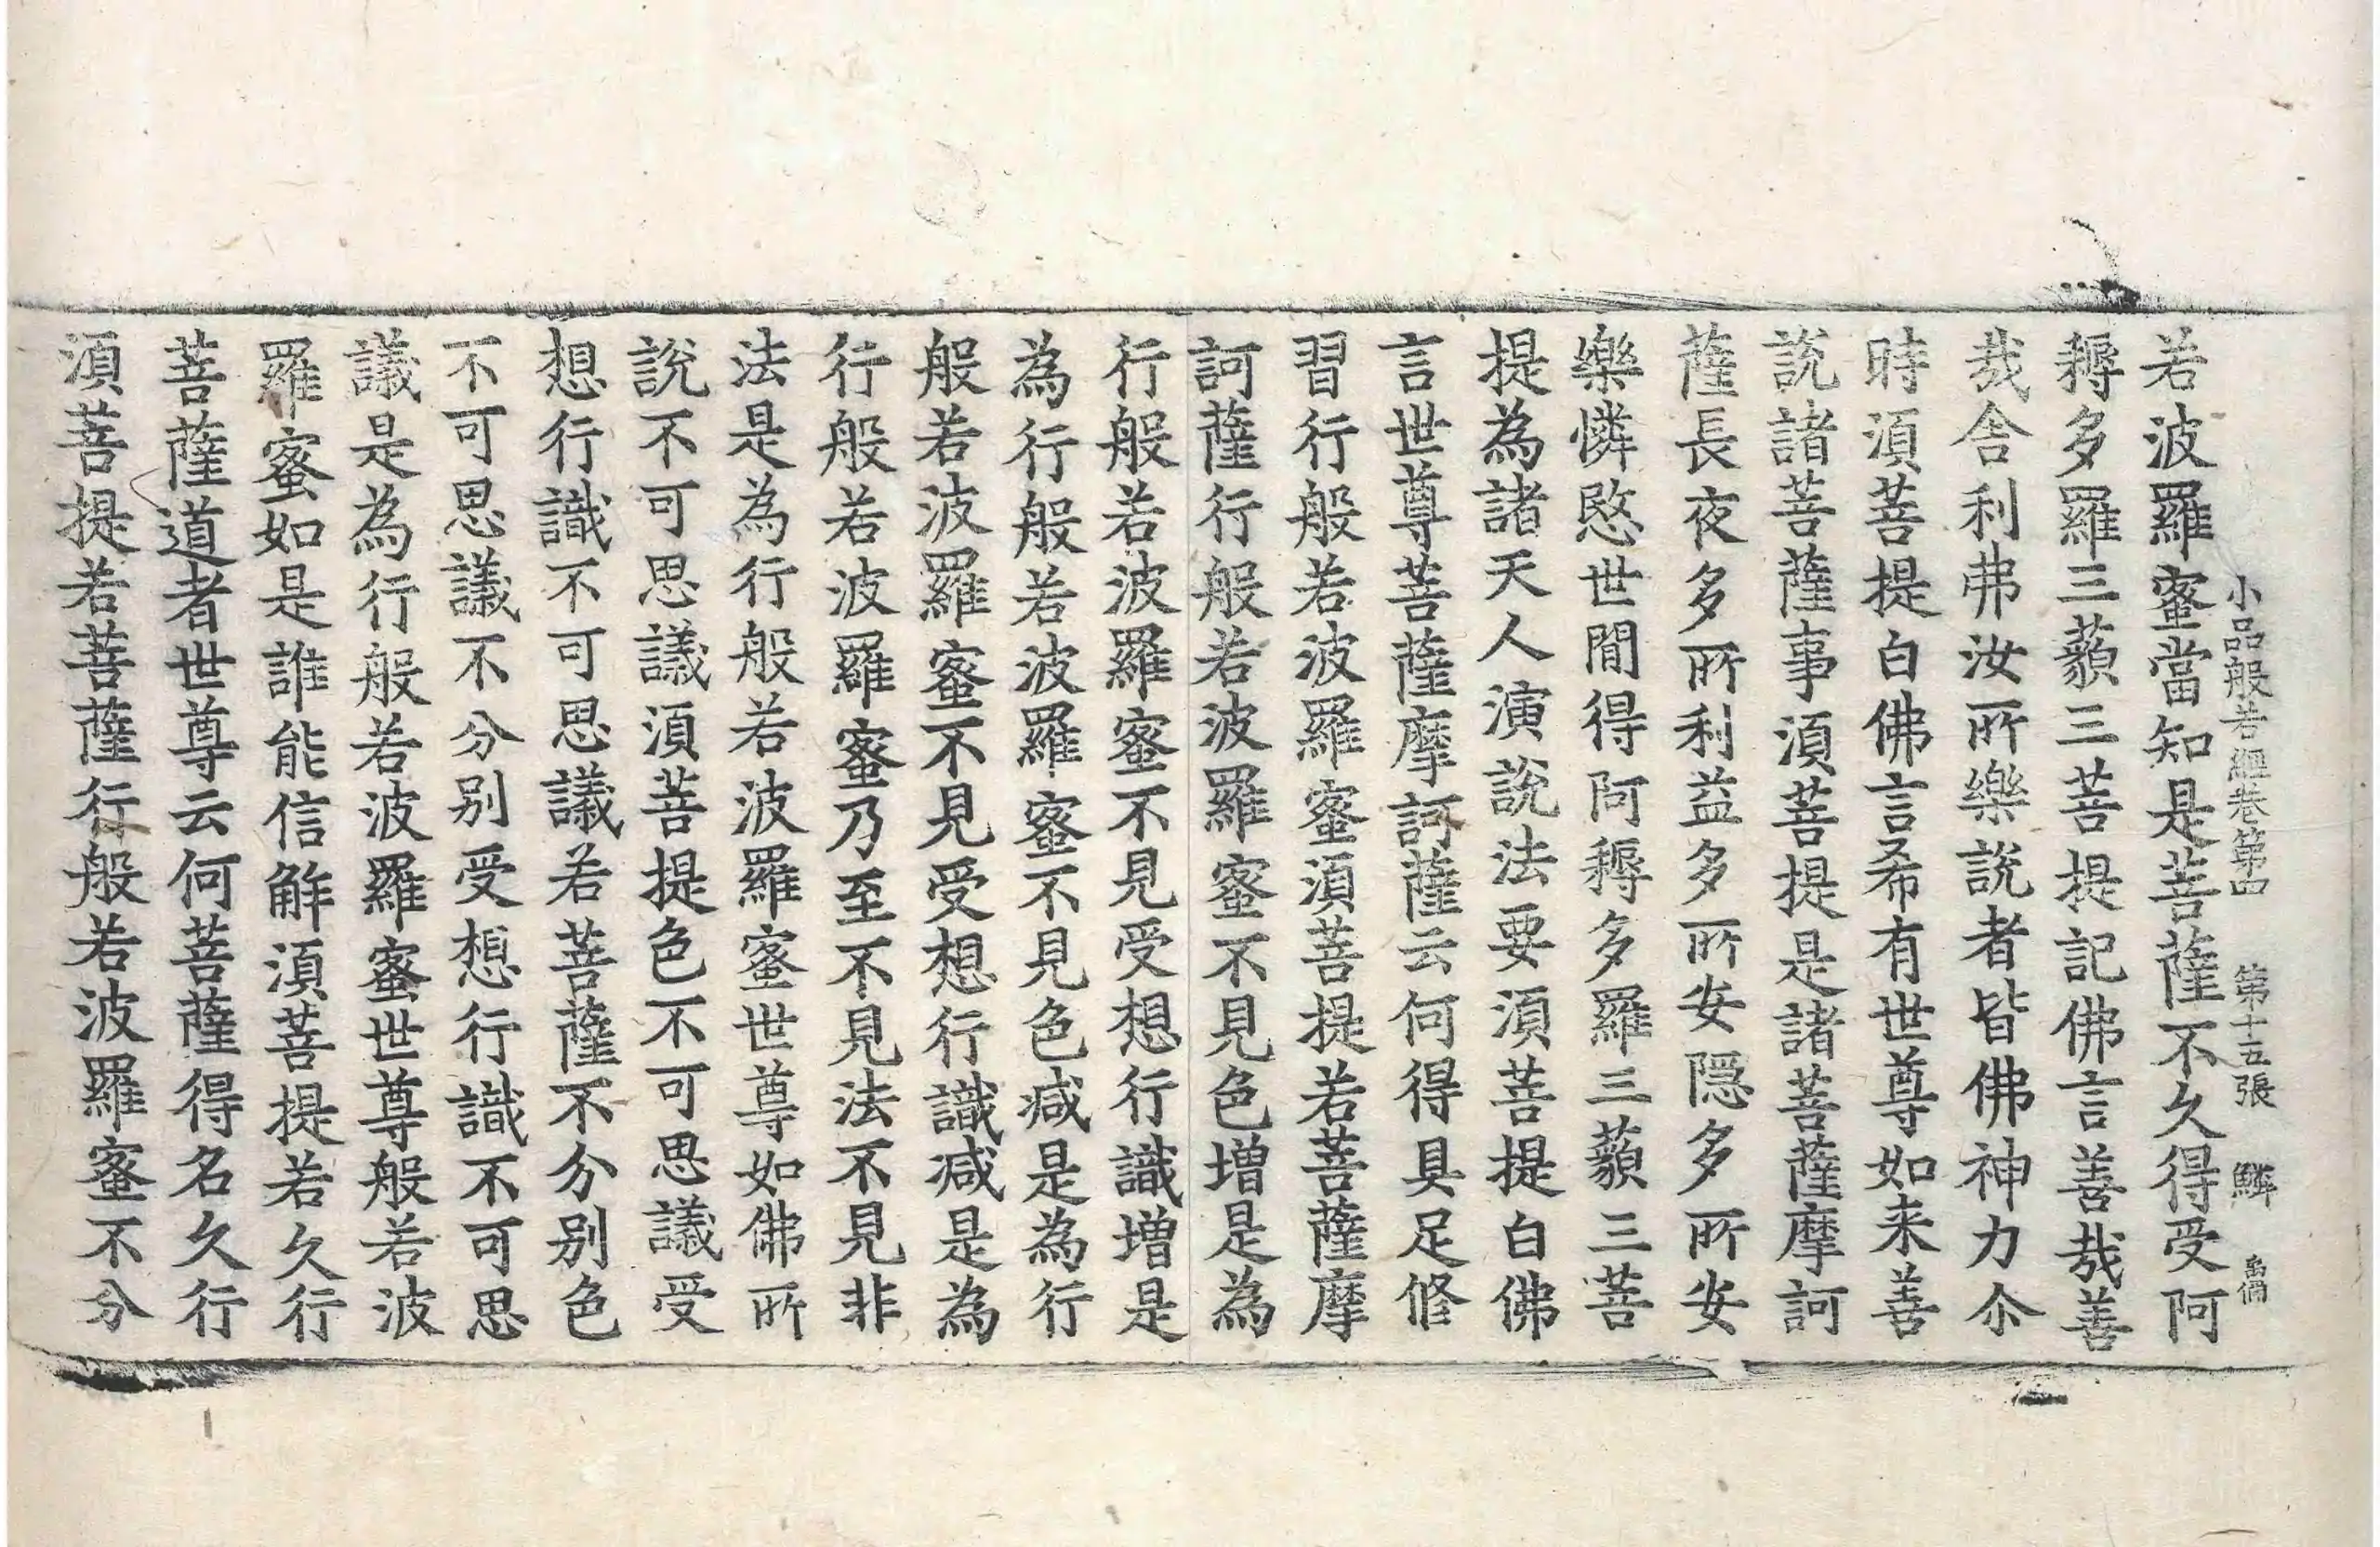 小品般若經卷第四 第十五張 鱗
若波羅蜜當知是菩薩不久得受阿
耨多羅三藐三菩提記佛言善哉善
哉舍利弗汝所樂說者皆佛神力尒
時湏菩提白佛言希有世尊如来善
說諸菩薩事湏菩提是諸菩薩摩訶
薩長夜多所利益多所安隱多所安
樂憐愍世間得阿耨多羅三藐三菩
提為諸天人演說法要湏菩提白佛
言世尊菩薩摩訶薩云何得具足修
習行般若波羅蜜湏菩提若菩薩摩
訶薩行般若波羅蜜不見色增是為
行般若波羅蜜不見受想行識增是
為行般若波羅蜜不見色减是為行
般若波羅蜜不見受想行識减是為
行般若波羅蜜乃至不見法不見非
法是為行般若波羅蜜世尊如佛所
說不可思議湏菩提色不可思議受
想行識不可思議若菩薩不分別色
不可思議不分別受想行識不可思
議是為行般若波羅蜜世尊般若波
羅蜜如是誰能信解湏菩提若久行
菩薩道者世尊云何菩薩得名久行
湏菩提若菩薩行般若波羅蜜不分